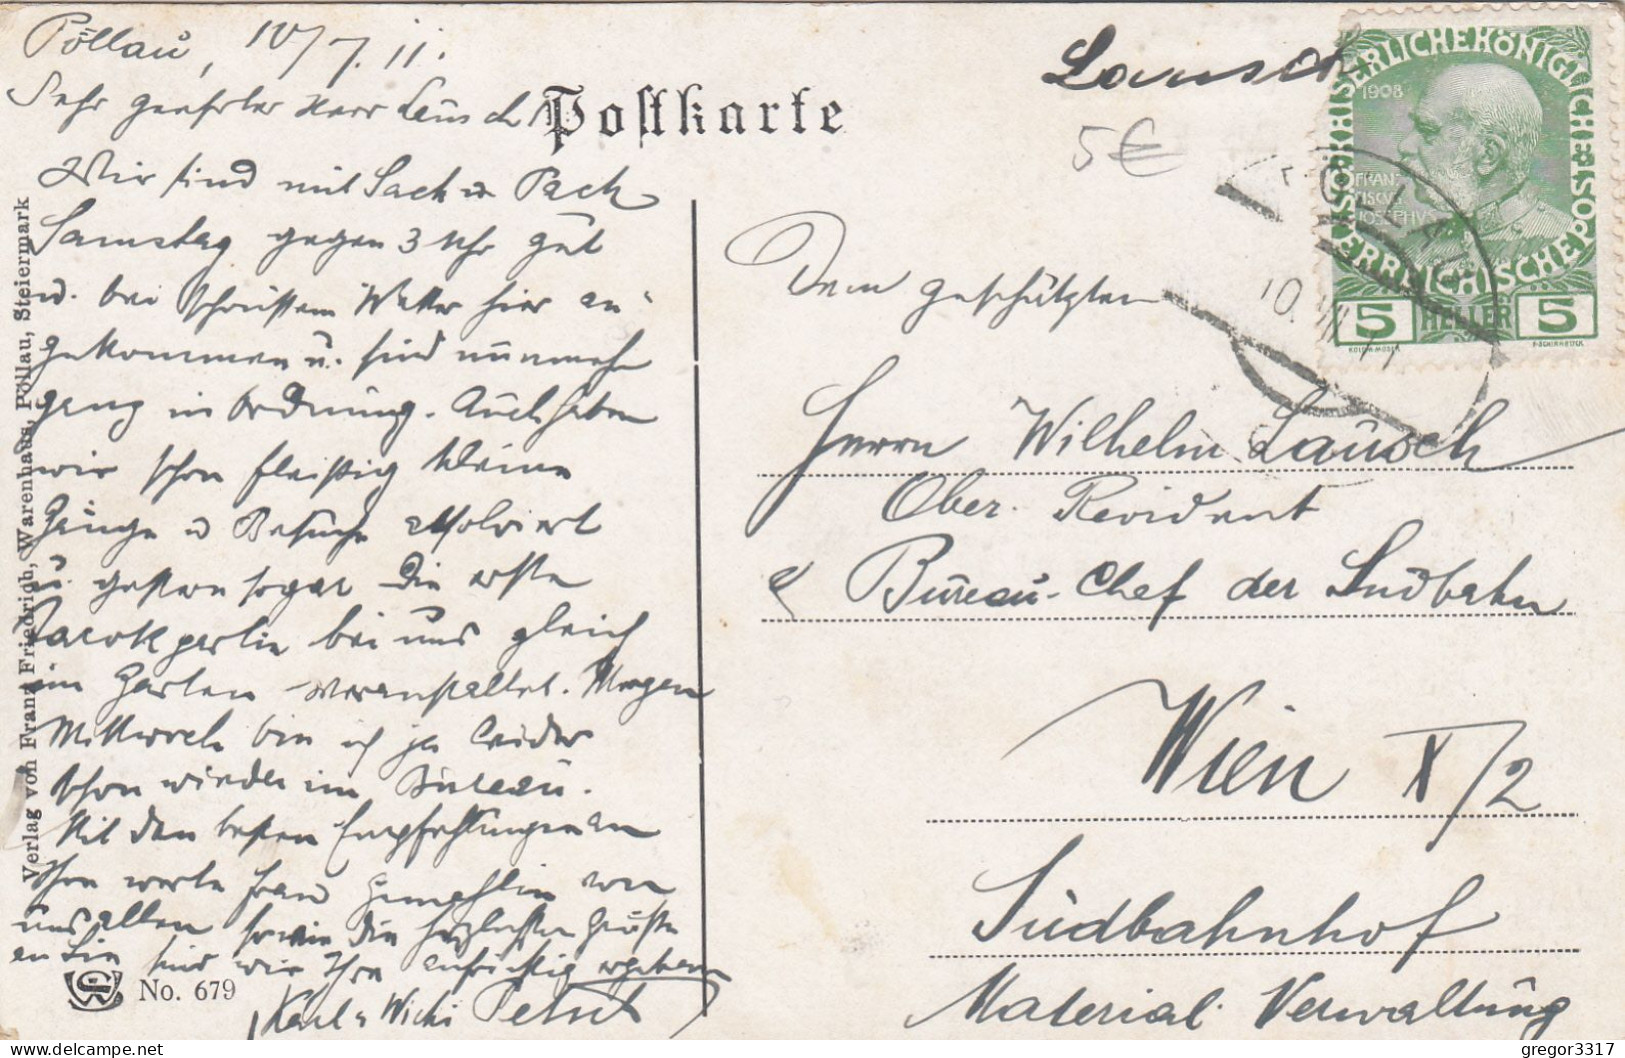 Pöllau, 10/7.11.
Sehr geehrter Herr Lausch!
Wir sind mit Sack u Pack
Samstag gegen 3 Uhr gut
u. bei schönstem Wetter hier an-
gekommen u. sind nunmehr
ganz in Ordnung. Auch haben
wir schon fleißig kleine
Gänge u Besuche absolviert
u. gestern sogar die erste
Tarokpartie bei uns gleich
im Garten veranstaltet. Morgen
Mittwoch bin ich ja leider
schon wieder im Bureau.
Mit den besten Empfehlungen an
Ihre werte Frau Gemahlin von
uns allen sowie die herzlichsten Grüße
an Sie sind wir Ihre aufrichtig ergebenen
Karl u Wicki
Verlag von Franz Friedrich, Warenhaus, Pöllau, Steiermark
No. 679
Postkarte
Lausch
5€
KAISERLICHE KÖNIGLICHE ÖSTERREICHISCHE POST
1908
FRAN
CISCVS
IOSEPHVS
5 HELLER 5
KOLO.MOSER
F.SCHIRNBÖCK
PÖLLAU
10.
Dem geschätzten
Herrn Wilhelm Lausch
Ober. Revident
& Bureau-Chef der Südbahn
Wien X/2
Südbahnhof
Material Verwaltung
gregor3317